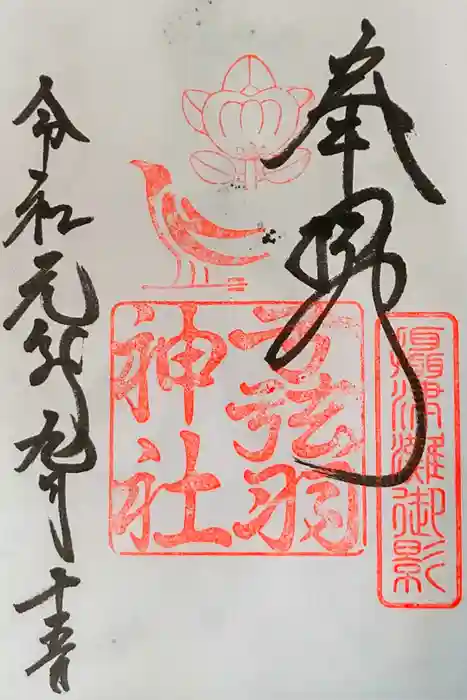 奉拝
摂津灘御影
弓弦羽
神社
令和元年九月十五日